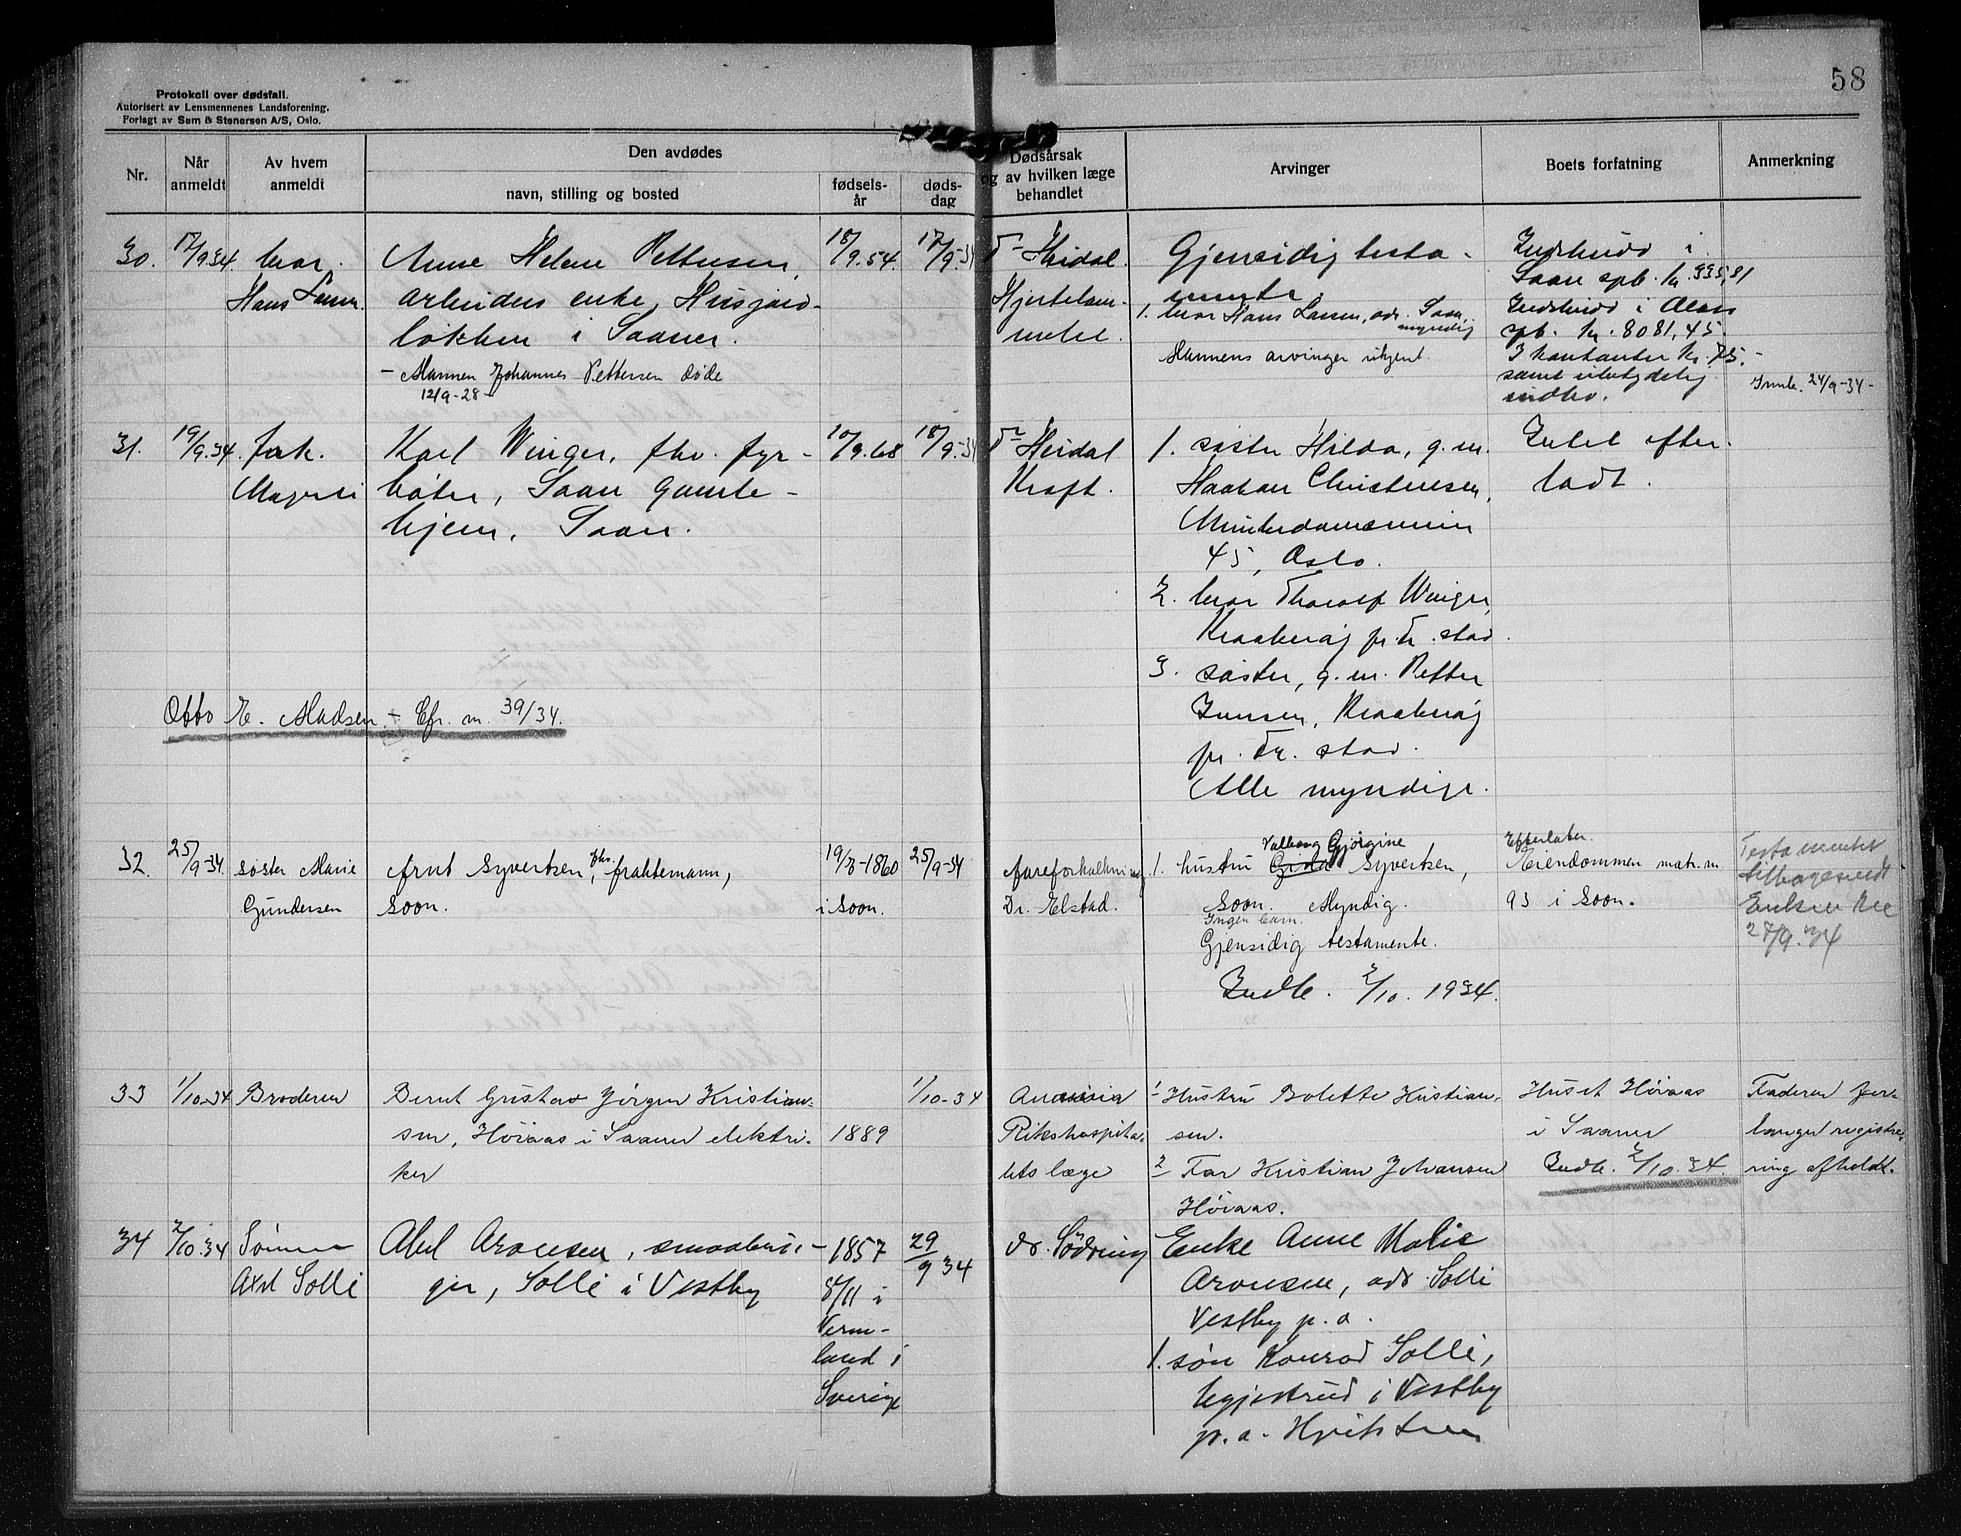 58
Protokoll over dødsfall.
Autorisert av Lensmennenes Landsforening.
Forlagt av Sem & Stenersen A/S, Oslo.
Nr.
Når anmeldt
Av hvem anmeldt
Den avdødes
navn, stilling og bosted
fødsels-år
døds-dag
Dødsårsak
og av hvilken læge
behandlet
Arvinger
Boets forfatning
Anmerkning
30.
17/9 34.
bror.
Hans Larsen
Anne Helene Pettersen,
arbeiders enke,
løkken i Saaner.
- Mannen Johannes Pettersen døde
12/9-28-
18/9.54.
17/9-34
Dr Heidal.
Hjertelam-
melse.
Gjensidig testa-
mente.
1. bror Hans Larsen, adr. Soon,
myndig
Mannens arvinger ukjent.
Indskudd i
Soon spb. kr. 335,81
Indskudd i
spb. kr. 8081,45.
I kontanter kr. 75.-
samt ubetydelig
indbo.
Innb. 24/9-34-
31.
19/9.34.
fork.
Karl Winger, fhv. fyr-
bøter, Soon gamle-
hjem, Soon.
10/9.68
18/9-34
Dr Heidal
Kreft.
1. søster Hilda, g. m.
Haakon Christensen,
45, Oslo.
2. bror Thoralf Winger,
Kraakerøy pr. Fr. stad.
3. søster, g. m. Petter
Jensen, Kraakerøy
pr. Fr. stad.
Alle myndige.
Intet efter-
ladt.
Otto E. Madsen - Cfr. nr. 39/34.
32.
25/9-34.
søster Marie
Gundersen
Arnt Syvertsen, fhv. fraktemann,
Soon.
19/8-1860
i Soon.
25/9-34
Aareforkalkning
Dr. Elstad.
Valborg Gjørgine
1. hustru Syvertsen,
Soon. Myndig.
Ingen barn.
Gjensidig testamente.
Indb. 2/10. 1934.
Efterlater.
Eiendommen matr. nr.
93 i Soon.
Testamentet
tilbagesendt
Enken
27/9.34
33
1/10-34
Broderen
Bernt Gustav Jørgen Kristian-
sen, Høiaas i Saaner elektri-
ker
1889
1/10-34
Anæmia
Rikshospita-
lets læge
1 Hustru Bolette Kristian-
sen.
2 Far Kristian Johansen
Høiaas.
Huset Høiaas
i Saaner
Indb. 2/10.34.
Faderen for-
langer registre-
ring afholdt.
34
2/10.34
Sønnen
Axel Solli
Abel Aronsen, smaabru-
ger, Solli i Vestby
1857
8/11 i
Verm-
land i
Sverige
29/9 34
dr. Södring
Enke Anne Malie
Aronsen, adr. Solli
Vestby p. a.
1. søn Konrad Solli,
i Vestby
p. a. Hvitsten